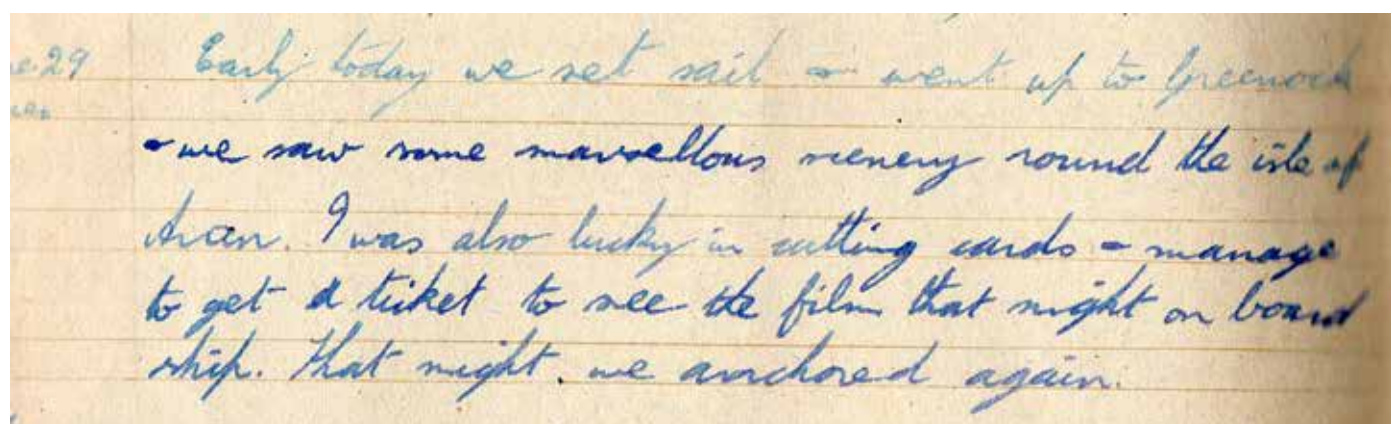 e 29 Early today we set sail - went up to Greenock
- we saw some marvellous scenery round the isle of
Aran. I was also lucky in cutting cards - manage
to get a ticket to see the film that night on board
ship. That night we anchored again.